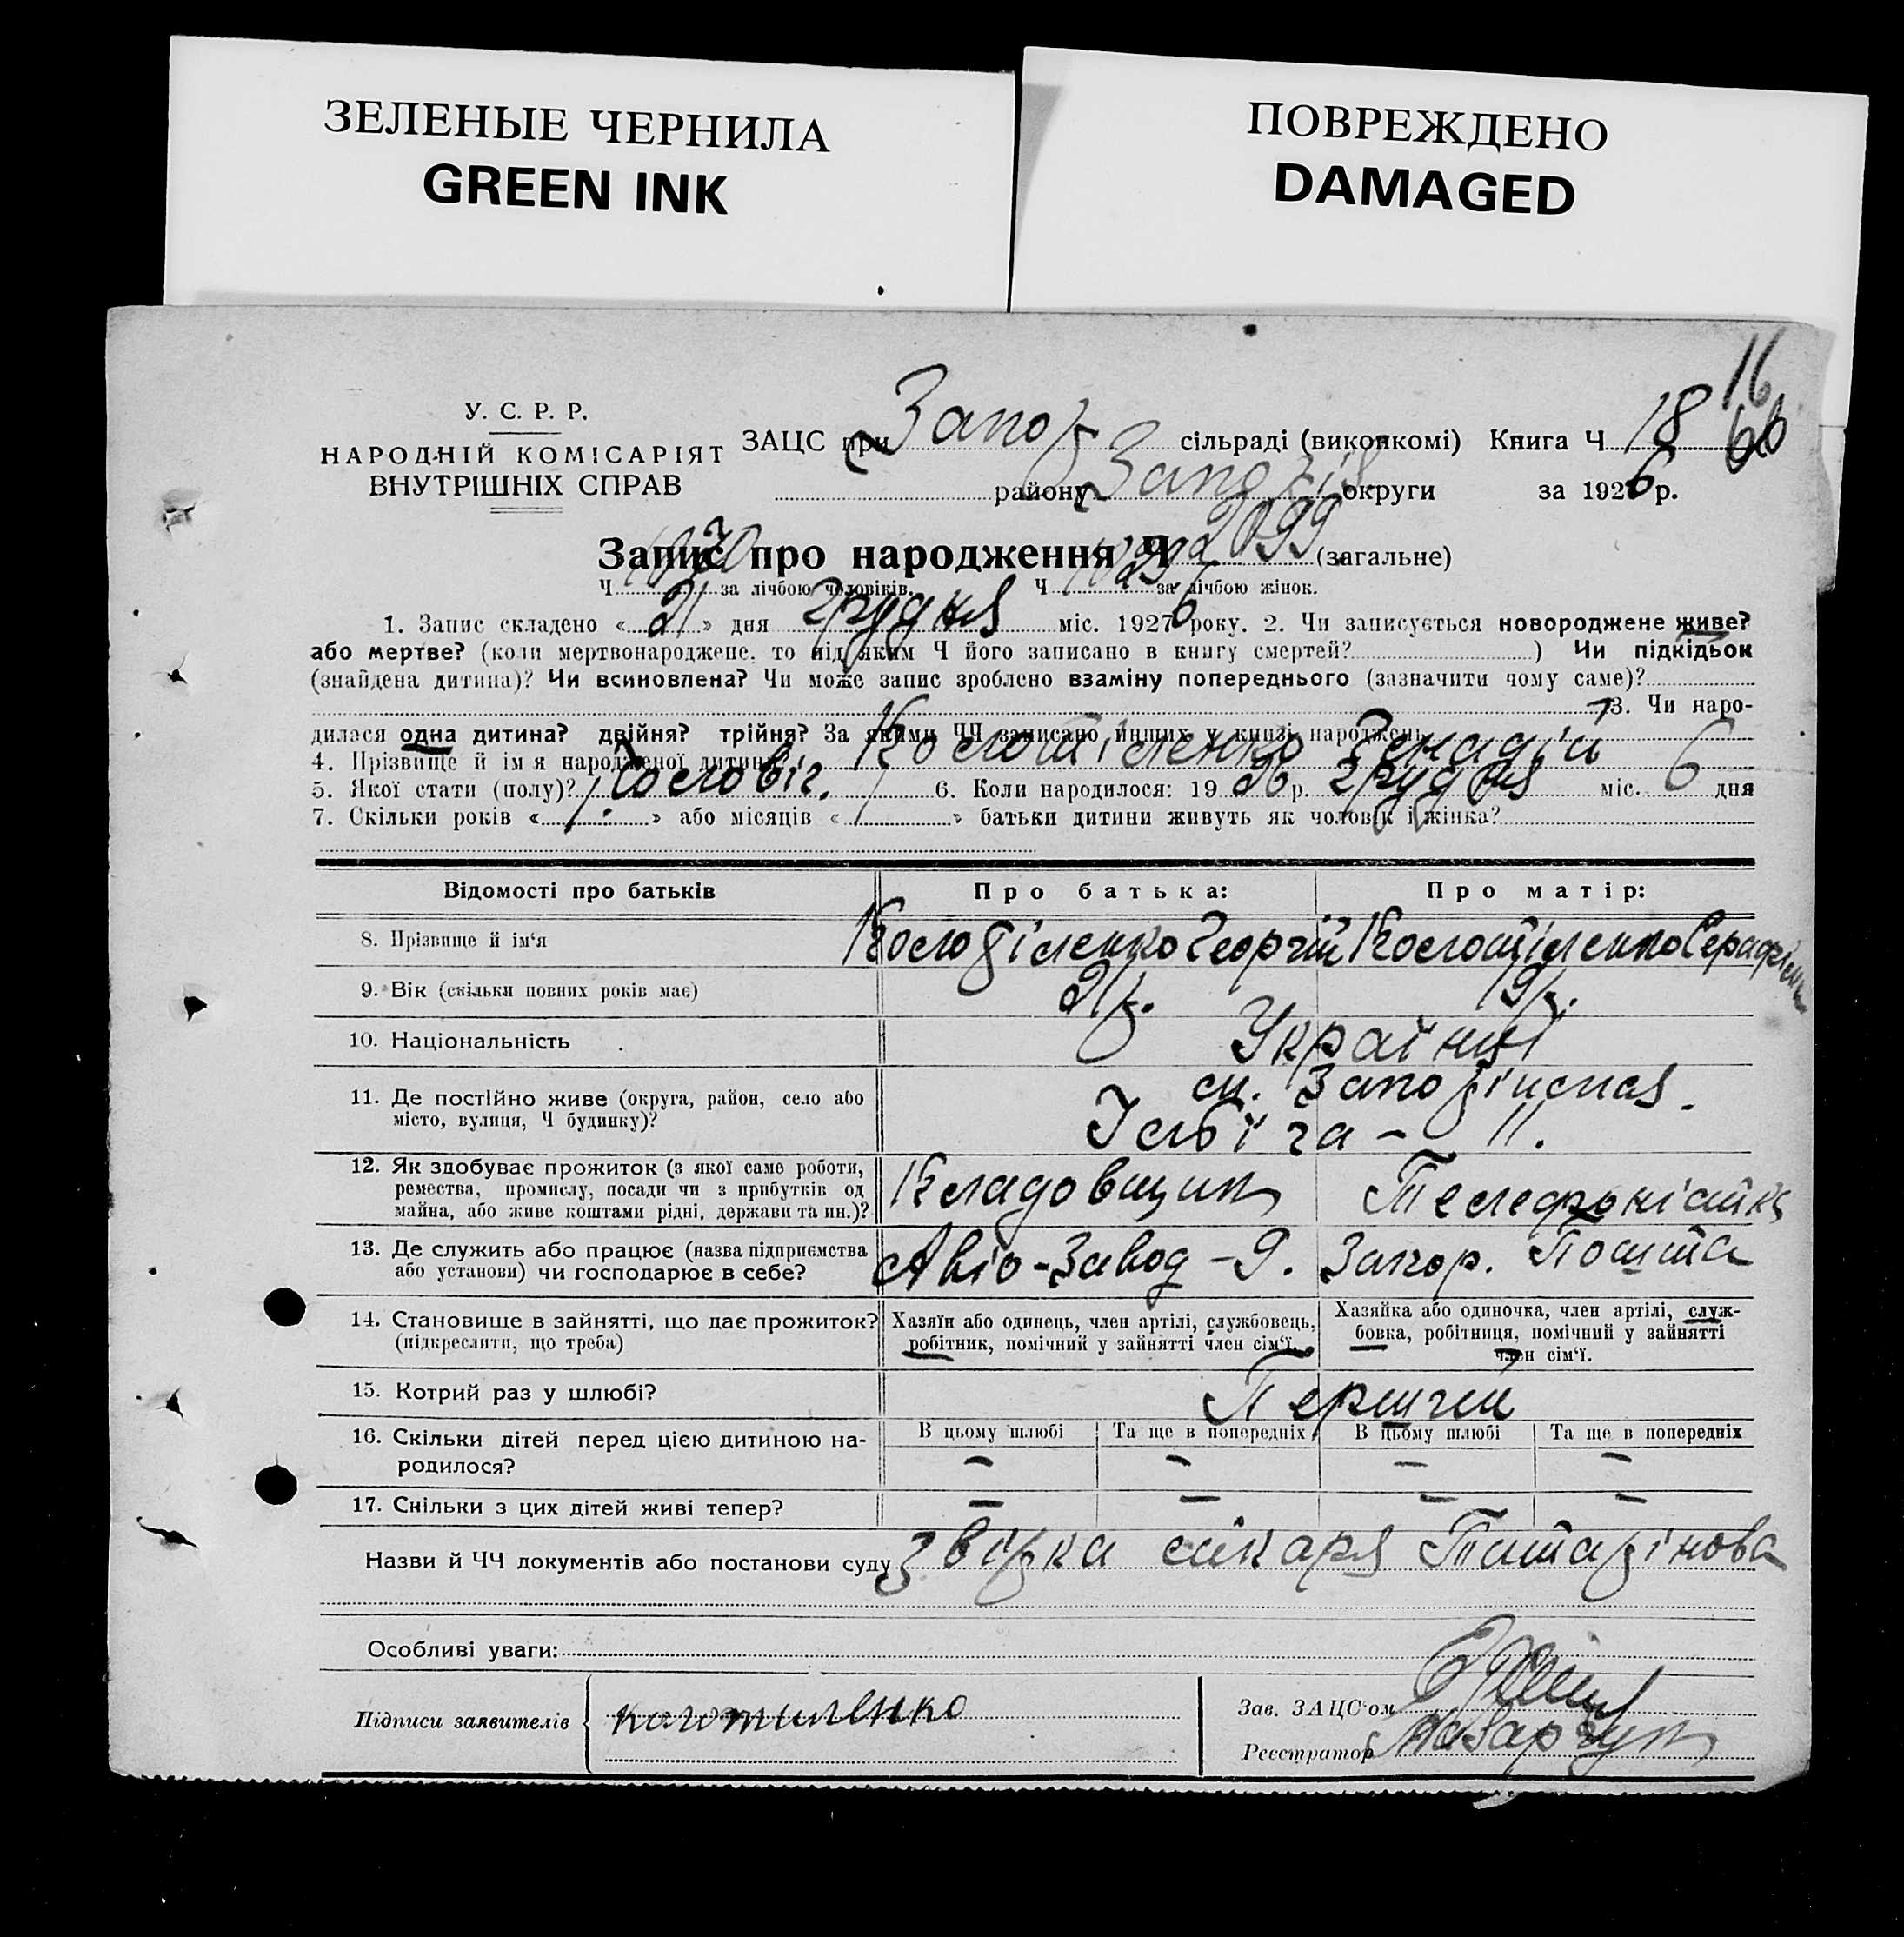 ЗЕЛЕНЫЕ ЧЕРНИЛА
GREEN INK
ПОВРЕЖДЕНО
DAMAGED
16
У. С. Р. Р.
НАРОДНІЙ КОМІСАРІЯТ
ВНУТРІШНІХ СПРАВ
ЗАЦС при Запоr сільраді (виконкомі) Книга Ч 18
району округи за 1926 р.
Запис про народження Ч 2099 (загальне)
Ч за лічбою чоловіків. Ч за лічбою жінок.
1. Запис складено « 21 » дня грудня міс. 1926 року. 2. Чи записується новороджене живе?
або мертве? (коли мертвонароджене, то під яким Ч його записано в книгу смертей? ) Чи підкідьок
(знайдена дитина)? Чи всиновлена? Чи може запис зроблено взаміну попереднього (зазначити чому саме)?
3. Чи наро-
дилася одна дитина? двійня? трійня? За якими ЧЧ записано инших у книзі народжень
4. Прізвище й ім'я народженої дитини Колотіленко Генадій
5. Якої стати (полу)? Чоловіч. 6. Коли народилося: 19 26 р. грудня міс. 6 дня
7. Скільки років « 1 » або місяців « » батьки дитини живуть як чоловік і жінка?
Відомості про батьків
Про батька:
Про матір:
8. Прізвище й ім'я Колотіленко Георгій Колотіленко Серафіма
9. Вік (скільки повних років має) 21 р. 19 р.
10. Національність Українці
11. Де постійно живе (округа, район, село або
місто, вулиця, Ч будинку)?
11.
12. Як здобуває прожиток (з якої саме роботи,
ремества, промислу, посади чи з прибутків од
майна, або живе коштами рідні, держави та ин.)?
Кладовщик Телефоністка
13. Де служить або працює (назва підприємства
або установи) чи господарює в себе?
Авіо-Завод - 9. Запор. Пошта
14. Становище в зайнятті, що дає прожиток?
(підкреслити, що треба)
Хазяїн або одинець, член артілі, службовець,
робітник, помічний у зайнятті член сім'ї.
Хазяйка або одиночка, член артілі, служ-
бовка, робітниця, помічний у зайнятті
член сім'ї.
15. Котрий раз у шлюбі? Перший
16. Скільки дітей перед цією дитиною на-
родилося?
В цьому шлюбі Та ще в попередніх В цьому шлюбі Та ще в попередніх
– – – –
17. Скільки з цих дітей живі тепер? – – – –
Назви й ЧЧ документів або постанови суду Звістка лікаря
Особливі уваги:
Підписи заявителів Колотиленко
Зав. ЗАЦС'ом
Реєстратор